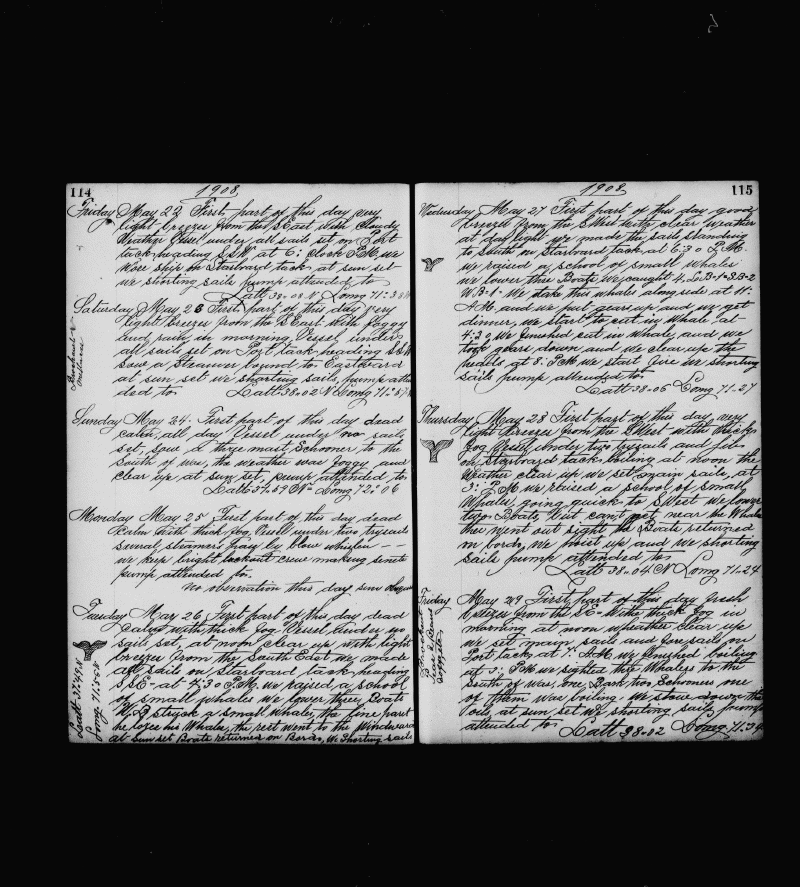 114
1908,
Friday May 22 First part of this day very
light breeze from the S East with Cloudy
Weather Vessel under all sails set on Port
tack heading S.S.W. at 6: Clock P.M. we
Wore ship on Starboard tack at sun set
we shorting sails pump attended to
Latt 38-08 N Long 71=38 W
Saturday May 23 First part of this day very
light breeze from the S East with foggy
and rain in morning Vessel under
all sails set on Port tack heading S.S.W
Saw a Steamer bound to Eastward
at sun set we shorting sails, pump atten
ded to. Latt 38=02 N Long 71=
Sunday May 24. First part of this day dead
calm, all day Vessel under no sails
set, Saw a three mast Schooner, to the
South of us, the weather was foggy and
clear up at sun set, pump attended to
Latt 37=59 N Long 72=06
Monday May 25 First part of this day dead
calm with thick fog Vessel under two trysails
several steamers pass by blow whistles
we keep bright lookout crew making
pump attended to.
no observation this day
Tuesday May 26 First part of this day dead
calm with thick fog Vessel under no
sails set, at noon clear up with light
breezes from the South East we made
all sails on Starboard tack heading
S.S.E. at 4:30 P.M. we raised a school
of small whales we lower three Boats
W.B struck a small whale, the line part
he loses his Whale, the rest went to the Windward
at Sun set Boats returned on Bord, We Shorting sails
Latt 37=49 N
Long 71=54
115
1908
Wednesday May 27 First part of this day good
breeze from the S West with clear weather
at day light we made the sails standing
to South on Starboard tack at 6:30 P.M.
we raised a school of small whales
we lower three Boats we caught 4. L.B-1-S.B-2
W.B-1- We take this whales along side at 11:
A.M and we put gears up and we get
dinner, we start to cut in whale at
4:30 we finished cut in whale and we
took gears down and we clear up the
heads at 8: P.M we start fire we shorting
sails pump attended to.
Latt 38-06 Long 71-27
Thursday May 28 First part of this day very
light breezes from the S West with thick
fog Vessel under two trysails and
on Starboard tack at noon the
Weather clear up we set main sails, at
3: P.M we raised a school of small
Whales going quick to S West we lower
two Boats, But can't get near the Whale
they went out sight the Boats returned
on bord, we hoist up and we shorting
sails pump attended to
Latt 38=04 N Long 71=24
Friday May 29 First part of this day fresh
breeze from the S.E- With thick fog in
morning at noon wheather clear up
we set main sails and fore sails on
Port tack at 7: A.M we finished boiling
at 1: P.M we sighted three Whalers to the
South of was, one Bark two, Schooners one
of tham was boiling We stove down the
at sun set we shorting sails pump
attended to Latt 38=02 Long 71=